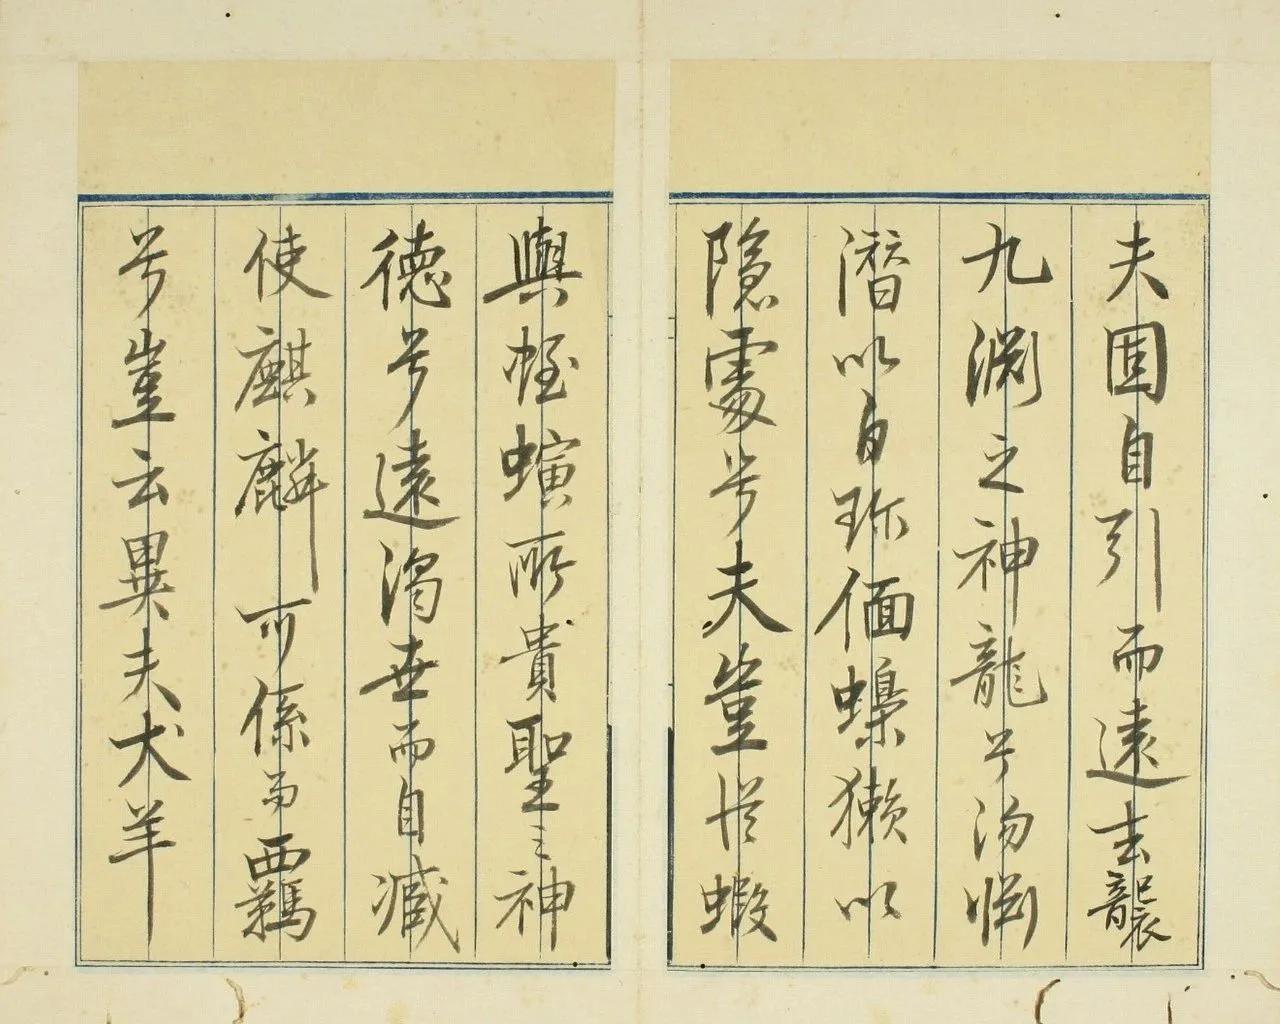 夫固自引而遠去襲
九淵之神龍兮沕淵
潛以自珍偭蟂獺以
隱處兮夫豈從蝦
與蛭螾所貴聖之神
德兮遠濁世而自臧
使麒麟可係而羈
兮豈云異夫犬羊